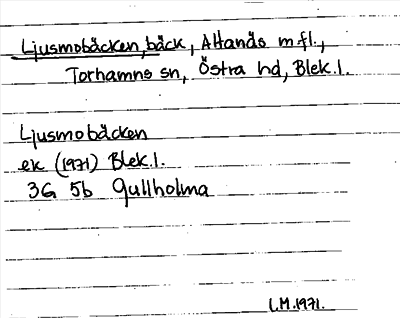 Ljusmobäcken, bäck, Attanäs m.fl.,
Torhamns sn, Östra hd, Blek.l.
Ljusmobäcken
ek (1971) Blek.l.
3G 5b Gullholma
I.M.1971.